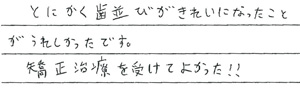 とにかく歯並びがきれいになったこと
がうれしかったです。
矯正治療を受けてよかった!!